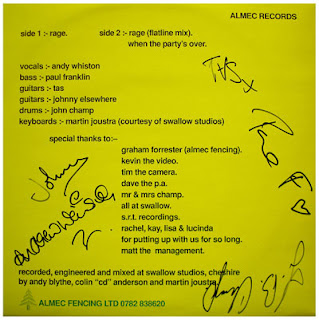 ALMEC RECORDS
side 1 :- rage. side 2 :- rage (flatline mix).
when the party's over.
vocals :- andy whiston
bass :- paul franklin
guitars :- tas
guitars :- johnny elsewhere
drums :- john champ
keyboards :- martin joustra (courtesy of swallow studios)
TAS x
special thanks to:-
graham forrester (almec fencing).
kevin the video.
tim the camera.
dave the p.a.
mr & mrs champ.
all at swallow.
s.r.t. recordings.
rachel, kay, lisa & lucinda
for putting up with us for so long.
matt the management.
Johnny
recorded, engineered and mixed at swallow studios, cheshire
by andy blythe, colin "cd" anderson and martin joustra.
ALMEC FENCING LTD 0782 838620